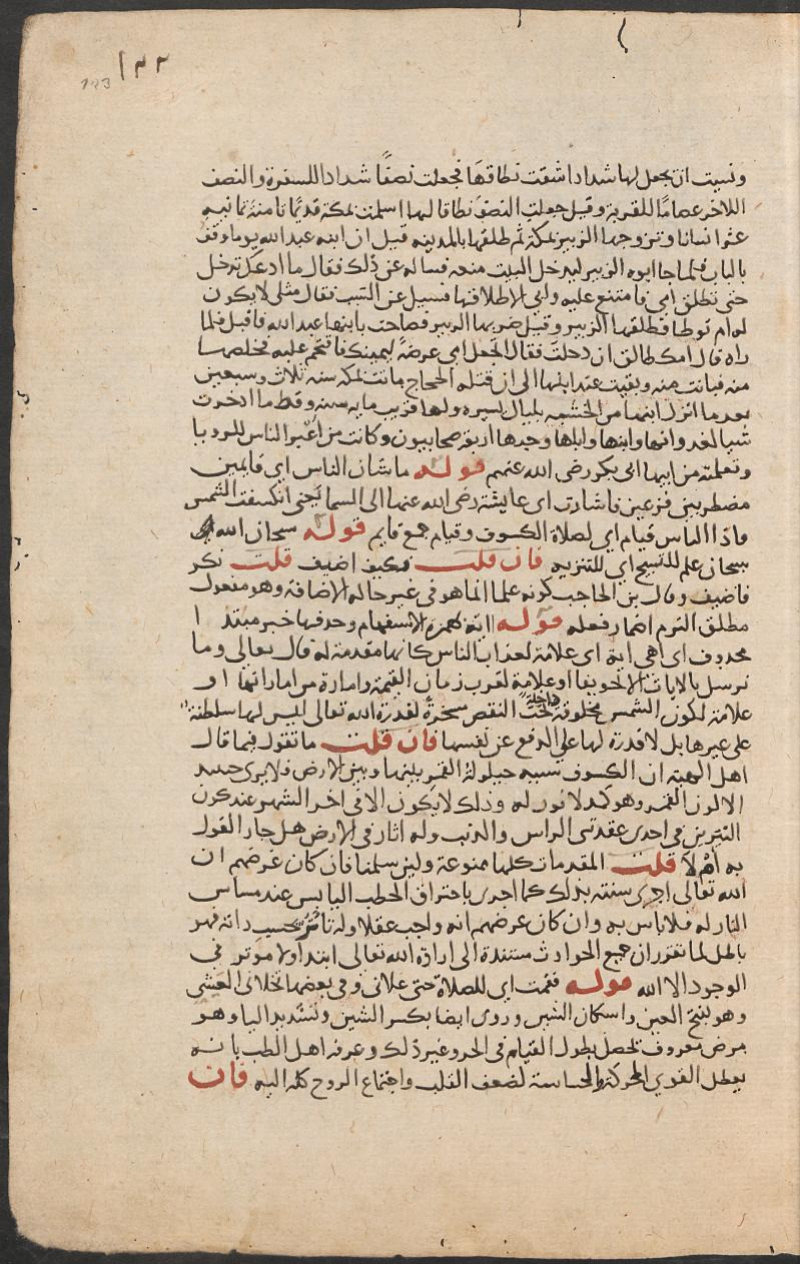 ١٢٢
123
ونسيت ان يجعل لها شدادا شقت نطاقها فجعلت نصفا شدادا للسفرة والنصف
اللاخر عصاما للقربة وقيل جعلت النصف نطاقا لها اسلمت بمكة قديما ثامنة ثمانيه
عشر انسانا وتزوجها الزبير بمكة ثم طلقها بالمدينه قيل ان ابنه عبد الله يوما وقف
بالباب فلما جا ابوه الزبير ليدخل البيت منعه فساله عن ذلك فقال ما ادعك تدخل
حتى تطلق امي فامتنع عليه وابي الا طلاقها فسيل عن السبب فقال مثلي لا يكون
له ام توطا فطلقها الزبير وقيل ضربها الزبير فصاحت بابنها عبد الله فاقبل فلما
راه قال امك طالق ان دخلت فقال اتجعل امي عرضة ليمينك فاقتحم عليه فخلصها
منه فبانت منه وبقيت عند ابنها الى ان قتله الحجاج ماتت بمكه سنه ثلاث وسبعين
بعد ما انزل ابنها من الخشبه بليال يسيره ولها قريب مايه سنه وقط ما ادخرت
شيا لغد وانها وابنها وابها وجدها اربعة صحابيون وكانت من اعبر الناس للرويا
وتعلمته من ابيها ابي بكر رضى الله عنهم قوله ما شان الناس اي قايمين
مضطربين فزعين فاشارت اي عايشة رضى الله عنها الى السما يعني انكسفت الشمس
فاذا الناس قيام اي لصلاة الكسوف وقيام جمع قايم قوله سبحان الله اي
سبحان علم للتسبيح اي للتنزيه فان قلت فكيف اضيف قلت نكر
فاضيف وقال بن الحاجب كونه علما انما هو في غير حاله الاضافة وهو مفعول
مطلق التزم اضمار فعله قوله اية بهمزه الاستفهام وحدفها خبر مبتدا
محدوف اي اهي اية اي علامة لعذاب الناس كانها مقدمة له قال تعالى وما
نرسل بالايات الا تخويفا او علامة لقرب زمان القيمة وامارة من اماراتها او
علامة لكون الشمس مخلوقة داخلة تحت النقص مسخرة لقدرة الله تعالى ليس لها سلطنة
على غيرها بل لا قدرة لها علي الدفع عن نفسها فان قلت ما تقول فيما قال
اهل الهيئه ان الكسوف سببه حيلولة القمر بينها وبين الارض فلا يرى حينيد
الا لون القمر وهو كمد لا نور له وذلك لا يكون الا في اخر الشهر عند كون
النيرين في احدى عقدتي الراس والذنب وله اثار في الارض هل جاز القول
به ام لا قلت المقدمات كلها ممنوعة ولين سلمنا فان كان غرضهم ان
الله تعالى اجرى سنته بذلك كما اجرى باحتراق الحطب اليابس عند مساس
النار له فلا باس به وان كان غرضهم انه واجب عقلا وله تاثير بحسب ذاته فهو
باطل لما تقرر ان جميع الحوادث مستندة الى ارادة الله تعالى ابتدا ولا موثر في
الوجود الا الله قوله فقمت اي للصلاة حتى علاني وفي بعضها تجلاني الغشي
وهو بفتح الغين واسكان الشين وروى ايضا بكسر الشين وتشديد اليا وهو
مرض معروف يحصل بطول القيام في الحر وغير ذلك وعرفه اهل الطب بانه
يعطل القوى المحركة والحساسة لضعف القلب واجتماع الروح كله اليه فان